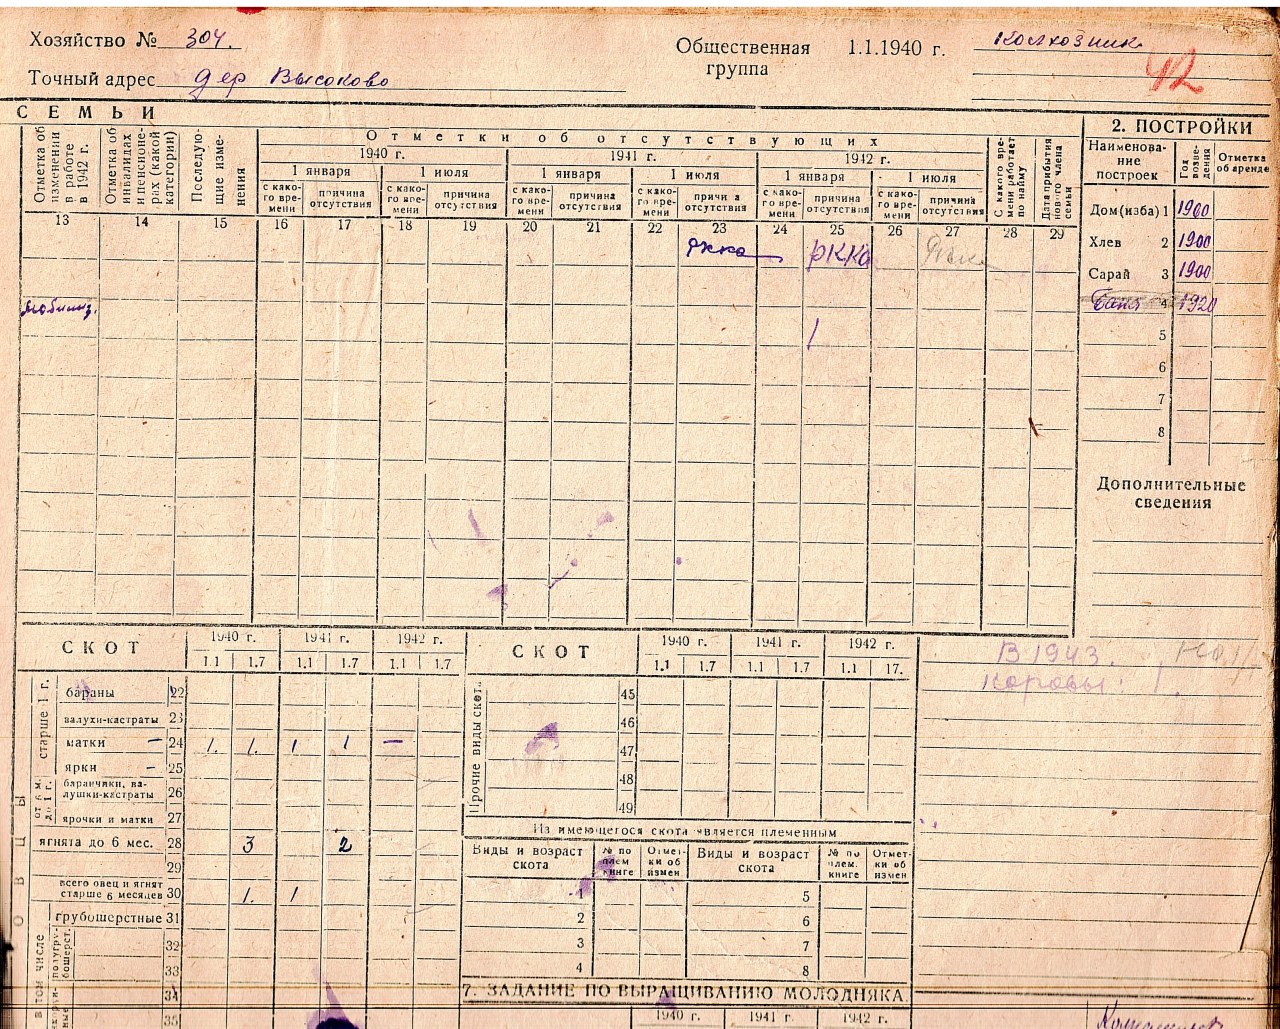 Хозяйство № 304.
Точный адрес дер Высоково
Общественная группа 1.1.1940 г. колхозник
42
СЕМЬИ
Отметка об изменении в работе в 1942 г.
Отметка об инвалидах и пенсионерах (какой категории)
Последующие изменения
Отметки об отсутствующих
1940 г. 1941 г. 1942 г.
1 января 1 июля 1 января 1 июля 1 января 1 июля
с какого времени причина отсутствия с какого времени причина отсутствия с какого времени причина отсутствия с какого времени причина отсутствия с какого времени причина отсутствия с какого времени причина отсутствия
С какого времени работает по найму
Дата прибытия нового члена семьи
13 14 15 16 17 18 19 20 21 22 23 24 25 26 27 28 29
ркка РККА ркка
мобилиз.
2. ПОСТРОЙКИ
Наименование построек Год возведения Отметка об аренде
Дом(изба) 1 1900
Хлев 2 1900
Сарай 3 1900
Баня 4 1920
5
6
7
8
Дополнительные сведения
СКОТ 1940 г. 1941 г. 1942 г.
1.1 1.7 1.1 1.7 1.1 1.7
ОВЦЫ
старше 1 г.
бараны 22
валухи-кастраты 23
матки — 24 1. 1. 1 1 —
ярки — 25
от 6 м. до 1 г.
баранчики, валушки-кастраты 26
ярочки и матки 27
ягнята до 6 мес. 28 3 2
29
всего овец и ягнят старше 6 месяцев 30 1. 1
в том числе
грубошерстные 31
полугрубошерст.
32
33
34
35
СКОТ 1940 г. 1941 г. 1942 г.
1.1 1.7 1.1 1.7 1.1 17.
Прочие виды скот.
45
46
47
48
49
Из имеющегося скота является племенным
Виды и возраст скота № по плем. книге Отметки об измен Виды и возраст скота № по плем. книге Отметки об измен
1 5
2 6
3 7
4 8
7. ЗАДАНИЕ ПО ВЫРАЩИВАНИЮ МОЛОДНЯКА.
1940 г. 1941 г. 1942 г.
В 1943.
коровы 1